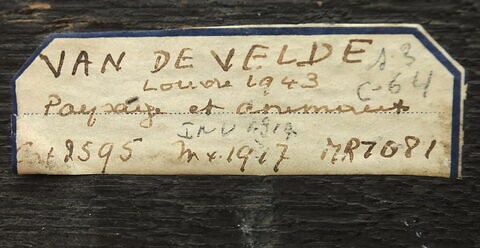 VAN DE VELDE A.3
Louvre 1943 C-64
Paysage et animaux
INV 1917
2595 Mx. 1917 MR 1081